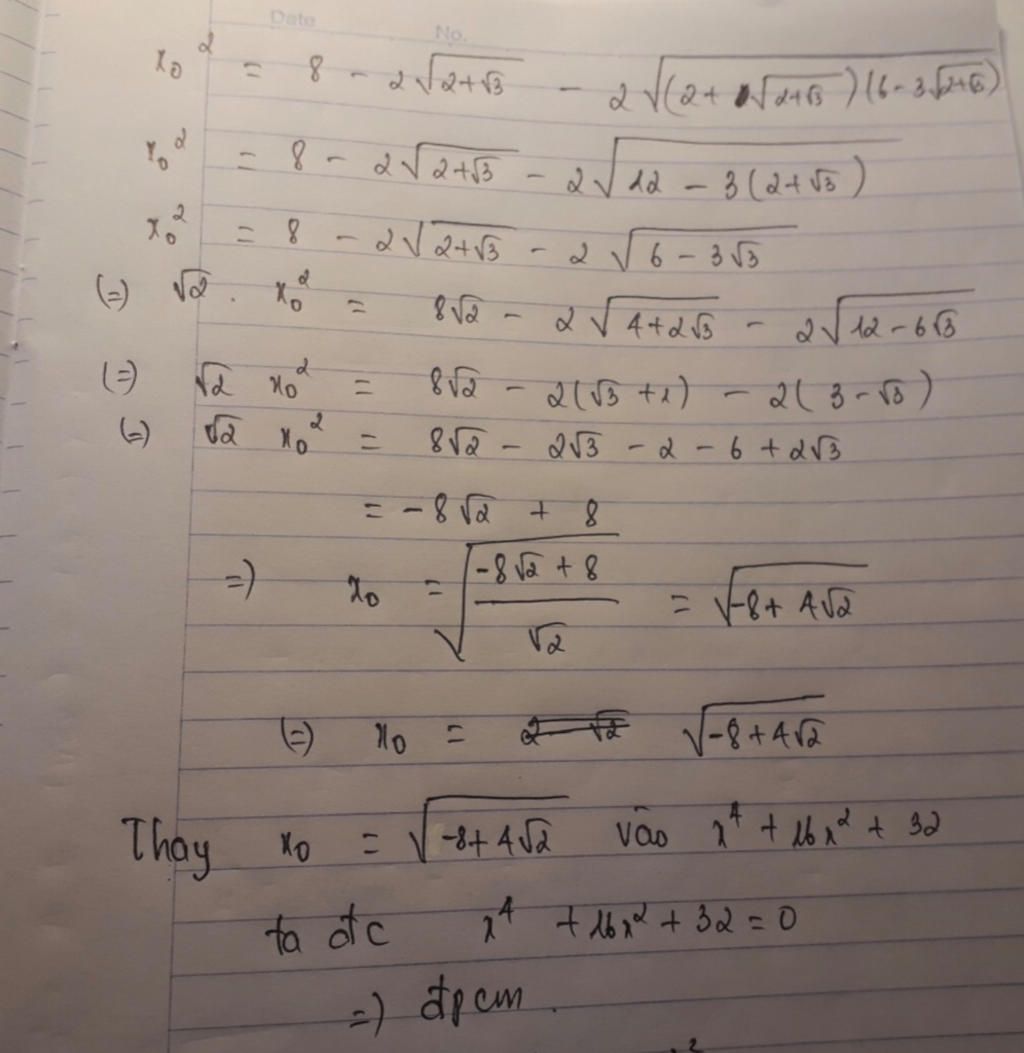 Date No.
x₀² = 8 - 2√(2+√3) - 2√((2+√(2+√3))(6-3√(2+√3)))
x₀² = 8 - 2√(2+√3) - 2√(12 - 3(2+√3))
x₀² = 8 - 2√(2+√3) - 2√(6 - 3√3)
(=) √2 . x₀² = 8√2 - 2√(4+2√3) - 2√(12-6√3)
(=) √2 x₀² = 8√2 - 2(√3+1) - 2(3-√3)
(=) √2 x₀² = 8√2 - 2√3 - 2 - 6 + 2√3
= -8√2 + 8
=) x₀ = √((-8√2+8)/√2) = √(-8+4√2)
(=) x₀ = √(-8+4√2)
Thay x₀ = √(-8+4√2) vào x⁴ + 16x² + 32
ta đc x⁴ + 16x² + 32 = 0
=) đpcm.